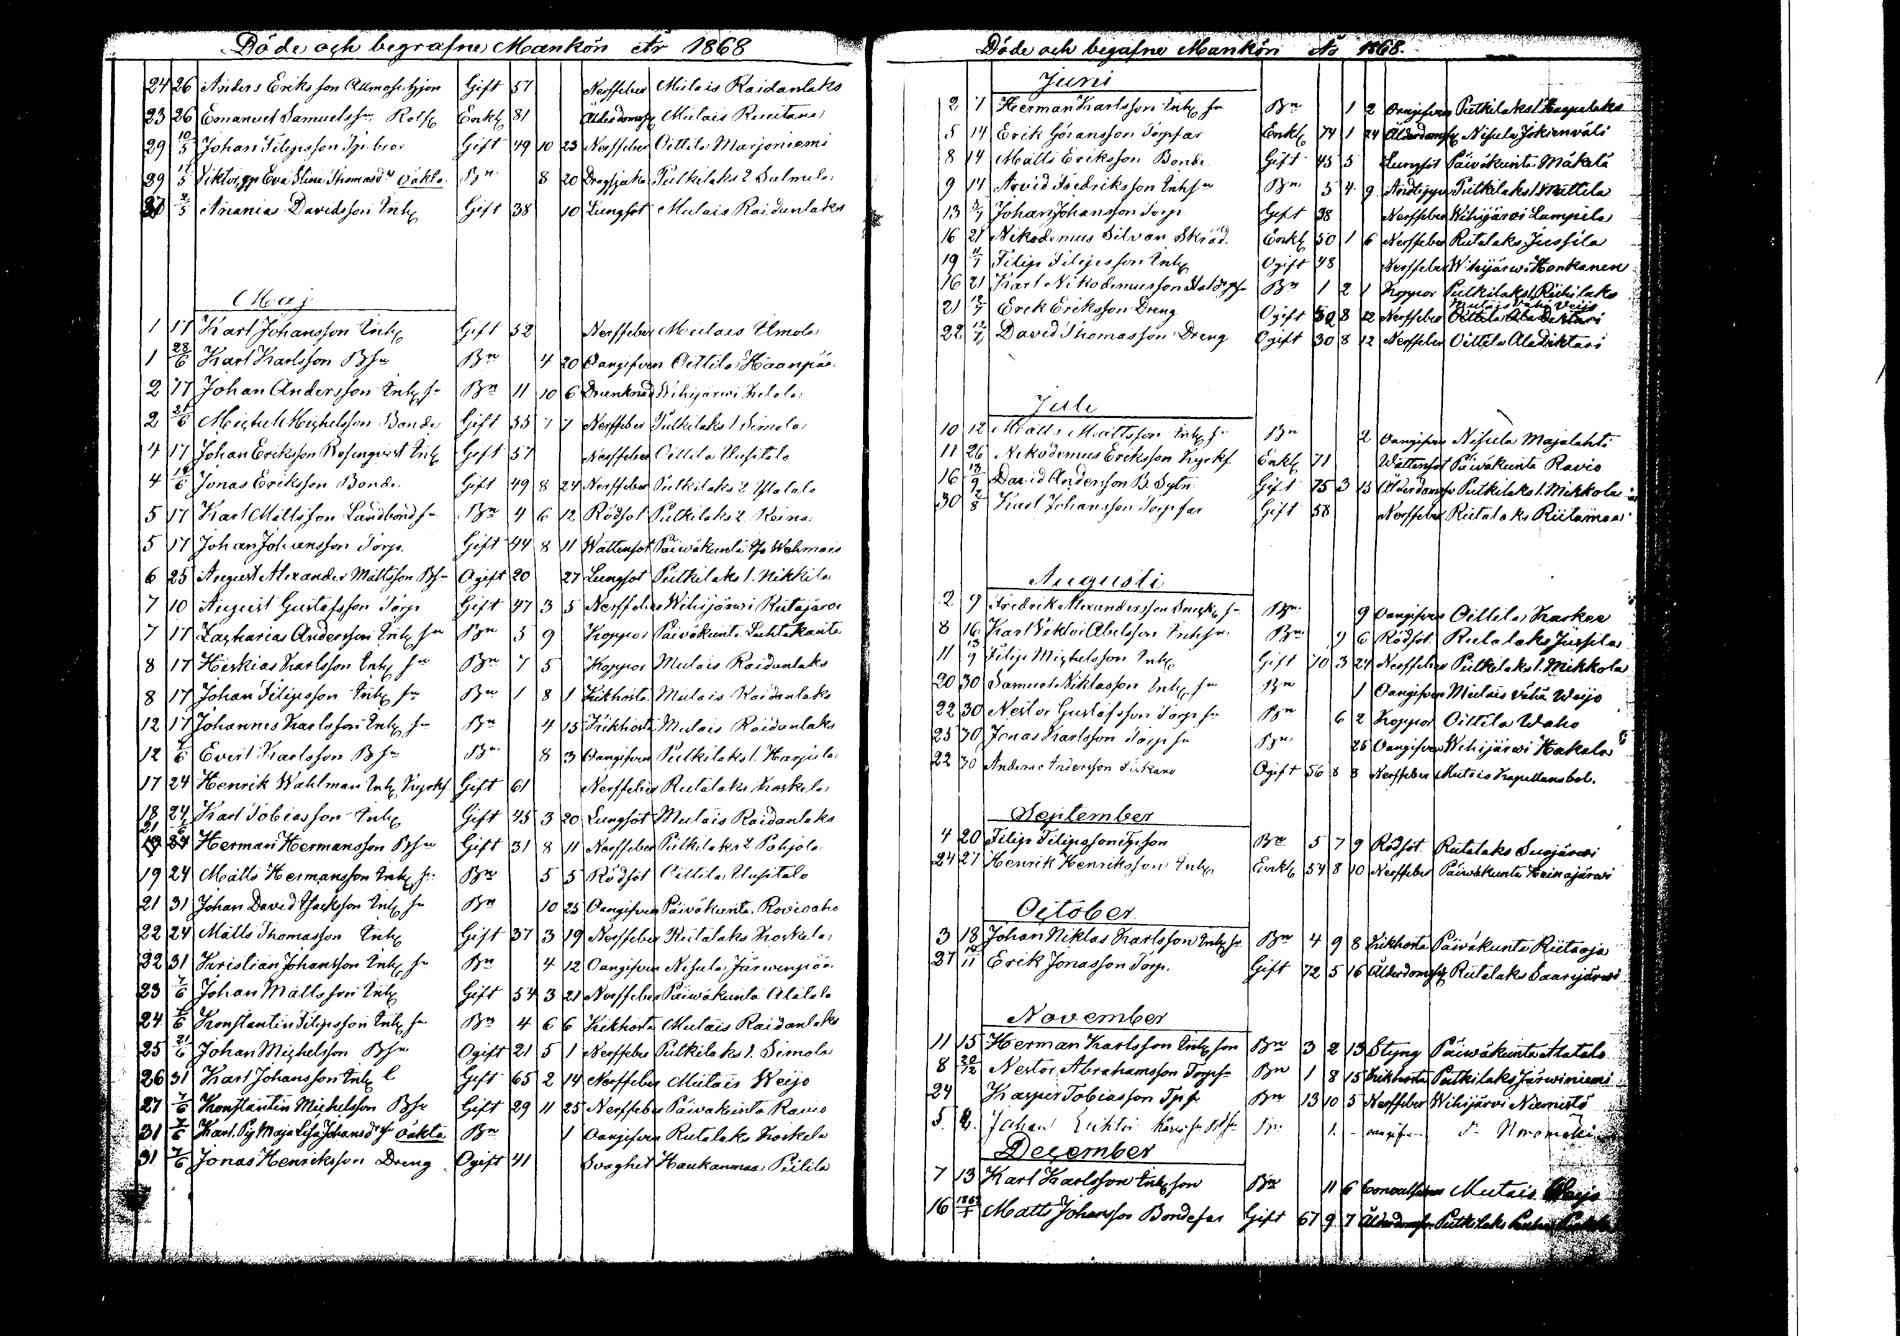 Döde och begrafne Mankön År 1868
24 26 Anders Eriksson Gift 57 Nerffeber Mulais Raidanlaks
23 26 Emanuel Samuelss Enkl 81 Mulais
29 10/5 Johan Filipsson Gift 49 10 23 Nerffeber Oittila Marjoniemi
29 17/5 Eva Stina Thomasdr oäkta Bn 8 20 Putkilaks 2 Salmela
5 Ananias Davidsson Inh Gift 38 10 Lungsot Mulais Raidanlaks
Maj
1 17 Karl Johansson Inh Gift 52 Nerffeber Mulais Ylmola
1 28/6 Karl Karlsson Bsn Bn 4 20 Oangifven Oittila Haanpää
2 17 Johan Andersson Inh sn Bn 11 10 6 Drunknad Wihijärwi
2 21/6 Michel Michelsson Bonde Gift 55 7 7 Nerffeber Putkilaks 1 Simola
4 17 Johan Eriksson Rosenqvist Inh Gift 57 Nerffeber Oittila Uusitalo
4 14/6 Jonas Eriksson Bonde Gift 49 8 24 Nerffeber Putkilaks 2 Ylatalo
5 17 Karl Mattsson Landbondsn Bn 4 6 12 Rödsot Putkilaks 2 Reina
5 17 Johan Johansson Torp. Gift 44 8 11 Wattensot Päiwäkunta
6 25 August Alexander Mattsson Bsn Ogift 20 27 Lungsot Putkilaks 1. Nikkila
7 10 August Gustafsson Torp Gift 47 3 5 Nerffeber Wihijärwi Rutajärvi
7 17 Zacharias Andersson Inh sn Bn 5 9 Koppor Päiväkunta
8 17 Hiskias Karlsson Inh sn Bn 7 5 Koppor Mulais Raidanlaks
8 17 Johan Filipsson Inh sn Bn 1 8 1 Kikhosta Mulais Raidanlaks
12 17 Johannes Karlsson Inh sn Bn 4 15 Kikhosta Mulais Raidanlaks
12 7/6 Evert Karlsson Bsn Bn 8 3 Oangifven Putkilaks 1. Harjula
17 24 Henrik Wahlman Inh Gift 61 Nerffeber Rutalaks Koskela
18 24 Karl Tobiasson Inh Gift 45 3 20 Lungsot Mulais Raidanlaks
21 Herman Hermansson Bsn Gift 31 8 11 Nerffeber Putkilaks 2 Pohjola
19 24 Matts Hermansson Inh sn Bn 5 5 Rödsot Oittila Uusitalo
21 31 Johan David Isacksson Inh sn Bn 10 25 Oangifven Päiväkunta Rovioaho
22 24 Matts Thomasson Inh Gift 37 3 19 Nerffeber Rutalaks Koskela
22 31 Kristian Johansson Inh sn Bn 4 12 Oangifven Nisula Järwenpää
23 7/6 Johan Mattsson Inh Gift 54 3 21 Nerffeber Päiwäkunta Alatalo
24 7/6 Konstantin Filipsson Inh sn Bn 4 6 6 Kikhosta Mulais Raidanlaks
25 21/6 Johan Michelsson Bsn Ogift 21 5 1 Nerffeber Putkilaks 1. Simola
26 31 Karl Johansson Inh Gift 65 2 14 Nerffeber Mulais Weijo
27 7/6 Konstantin Michelsson Bsn Gift 29 11 25 Nerffeber Päivakunta Ravio
31 7/6 Karl. Maja Lisa Johansdr oäkta Bn 1 Oangifven Rutalaks Koskela
31 7/6 Jonas Henriksson Dreng Ogift 41 Svaghet Haukanmaa Piilila
Döde och begafne Mankön År 1868.
Juni
2 7 Herman Karlsson Inh sn Bn 1 2 Oangifven Putkilaks 1
5 14 Erik Göransson Torpfar Enkl 74 1 24 Ålderdomssv Nisula Jokienväli
8 14 Matts Eriksson Bonde Gift 45 5 Lungsot Päiväkunta Mäkelä
9 14 Arvid Fredriksson Inh sn Bn 5 4 9 Putkilaks 1 Mattila
13 5/7 Johan Johansson Torp Gift 38 Nerffeber Wihijärvi Lampila
16 21 Nikodemus Silvan Skräd. Enkl 50 1 6 Nerffeber Rutalaks Jussila
19 11/7 Filip Filipsson Inh Ogift 48 Nerffeber Wihijärwi Honkanen
16 21 Karl Nikodemusson Bn 1 2 1 Koppor Putkilaks
21 12/7 Erick Eriksson Dreng Ogift 8 12 Nerffeber Mulais Vähä Veijo
22 12/7 David Thomasson Dreng Ogift 30 8 12 Nerffeber Oittila Aladiktari
Juli
10 12 Matts Mattsson Inh sn Bn 2 Oangifven Nisula Majalahti
11 26 Nikodemus Eriksson Enkl 71 Wattensot Päiväkunta Ravio
16 David Andersson B. Sytn. Gift 75 3 15 Ålderdomssv Putkilaks 1. Mikkola
30 2/8 Karl Johansson Torpfar Gift 58 Nerffeber Rutalaks Riitamaa
Augusti
2 9 Fredrik Alexandersson sn Bn 9 Oangifven Oittila Karkee
8 16 Karl Viktor Abelsson Inh sn Bn 9 6 Rödsot Rutalaks Jussila
11 13/9 Filip Michelsson Inh Gift 70 3 24 Nerffeber Putkilaks 1. Mikkola
20 30 Samuel Niklasson Inh sn Bn 1 Oangifven Mulais Vähä Weijo
22 30 Nestor Gustafsson Torp sn Bn 6 2 Koppor Oittila Waho
25 30 Jonas Karlsson Torp sn Bn 25 Oangifven Wihijärwi Hakala
22 30 Anders Andersson Ogift 56 8 8 Nerffeber Mulais Kapellansbol.
September
4 20 Filip Filipsson Tpson Bn 5 7 9 Rödsot Rutalaks Suojärwi
24 27 Henrik Henriksson Inh Enkl 54 8 10 Nerffeber Päiwäkunta Heinajärwi
October
3 18 Johan Niklas Karlsson Inh sn Bn 4 9 8 Kikhosta Päiväkunta Riitaoja
27 14/11 Erik Jonasson Torp. Gift 72 5 16 Ålderdomssv Rutalaks Saarijärwi
November
11 15 Herman Karlsson Inh son Bn 3 2 13 Styng Päiwäkunta Alatalo
8 20/12 Nestor Abrahamsson Torpsn Bn 1 8 15 Kikhosta Putkilaks Järwiniemi
24 Kasper Tobiasson Tpf Bn 13 10 5 Nerffeber Wihijärvi Niemistö
5. Johan Bn 1. oangifven
December
7 13 Karl Karlsson Inh son Bn 11 6 Convulsion Mulais Weijo
16 1869 Matts Johansson Bondefar Gift 67 9 7 Ålderdomssv Putkilaks